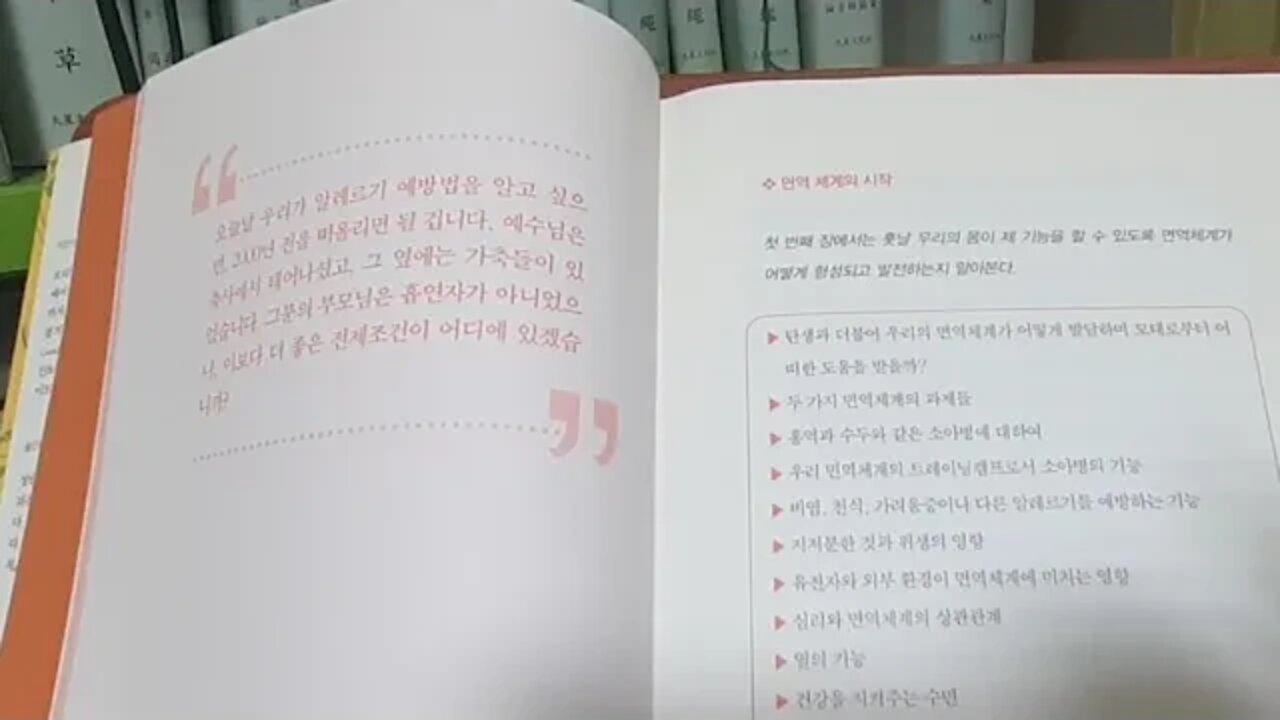 草
오늘날 우리가 알레르기 예방법을 알고 싶으
면, 2,000년 전을 떠올리면 될 겁니다. 예수님은
축사에서 태어나셨고, 그 옆에는 가축들이 있
었습니다. 그분의 부모님은 흡연자가 아니었으
니, 이보다 더 좋은 전제조건이 어디에 있겠습
니까?
면역 체계의 시작
첫 번째 장에서는 훗날 우리의 몸이 제 기능을 할 수 있도록 면역체계가
어떻게 형성되고 발전하는지 알아본다.
탄생과 더불어 우리의 면역체계가 어떻게 발달하며 모태로부터 어
떠한 도움을 받을까?
두 가지 면역체계의 과제들
홍역과 수두와 같은 소아병에 대하여
우리 면역체계의 트레이닝캠프로서 소아병의 기능
비염, 천식, 가려움증이나 다른 알레르기를 예방하는 기능
지저분한 것과 위생의 영향
유전자와 외부 환경이 면역체계에 미치는 영향
심리와 면역체계의 상관관계
열의 기능
건강을 지켜주는 수면